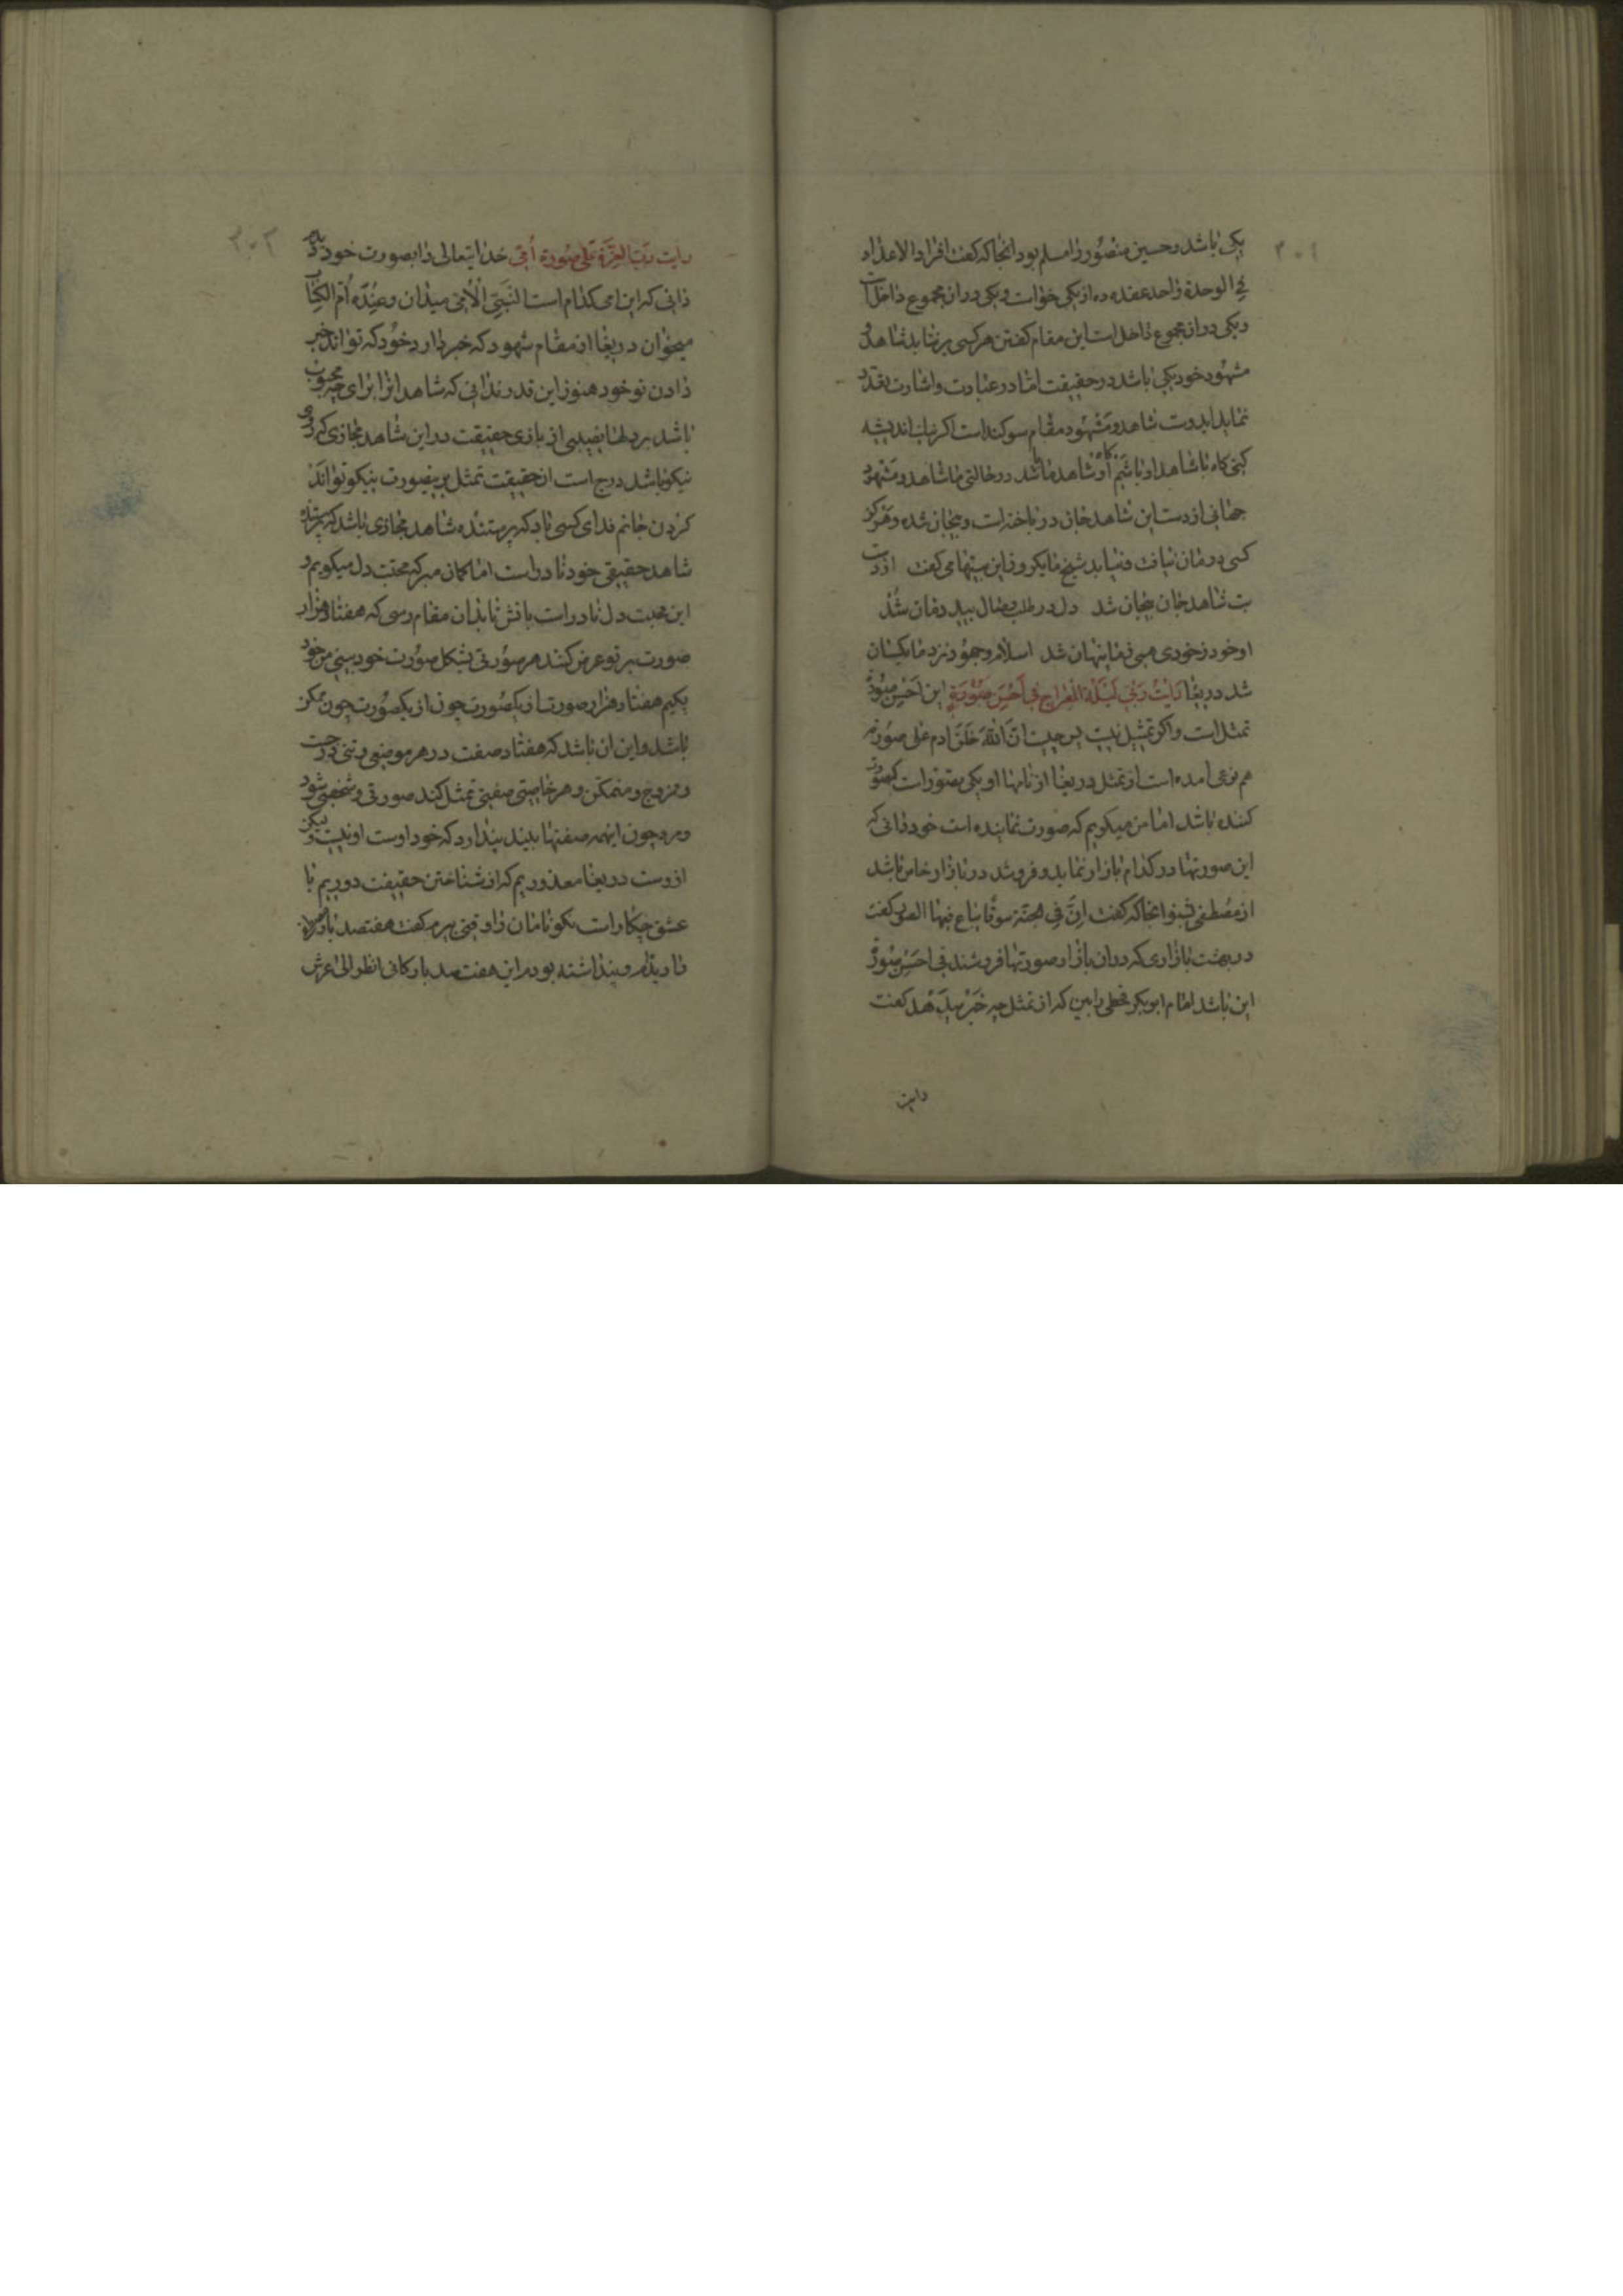 ۳۰۱
یکی باشد و حسین منصور را مسلم بود انجا که گفت افراد الاعداد
فی الوحدة واحد عقده ده از یکی خواست و یکی در ان مجموع داخل است
و یکی در ان مجموع داخل است این مقام گفتن هر کسی بر نتابد شاهد و
مشهود خود یکی باشد در حقیقت اما در عبارت و اشارت تعدد
نماید ایدوست شاهد و مشهود مقام سوکند است اکر نیک اندیشه
کنی کاه ما شاهد او باشیم و کاه او شاهد ما باشد در حالتی ما شاهد و مشهود
جهانی از دست این شاهد جان در باخته است و بیجان شده و هرکز
کسی درمان نیافت و نیابد شیخ ما یکروز این بیتها می گفت از دست
بت شاهد جان بیجان شد دل در طلب وصال بیدرمان شد
او خود ز خودی همی ز ما پنهان شد اسلام و جهود نزد ما یکسان
شد دریغا رایت ربی لیلة المعراج فی احسن صورة این احسن صورة
تمثل است و اکر تمثیل نیست پس چیست ان الله خلق ادم علی صورته
هم نوعی امده است از تمثل دریغا از نامها او یکی مصور است که صورت
کننده باشد اما من میکویم که صورت نماینده است خود دانی که
این صورتها در کدام بازار نماید و فروشد در بازار خاص باشد
از مصطفی بشنو انجا که گفت ان فی الجنة سوقا یباع فیها الصور گفت
در بهشت بازاری که در ان بازار صورتها فروشند فی احسن صورة
این باشد امام ابوبکر قحطی را بین که از تمثل چه خبر میدهد گفت
رایت
۳۰۲
رایت رب العزة علی صورة امی خدایتعالی را بصورت خود دیدم
دانی که این امی کدام است النبی الامی میدان و عنده ام الکتاب
میخوان دریغا از مقام شهود که خبر دارد خود که تواند خبر
دادن تو خود هنوز این قدر ندانی که شاهد انرا برای چه محبوب
باشد بر دلها نصیبی از بازی حقیقت در این شاهد مجازی که روی
نیکو باشد درج است ان حقیقت تمثل بدینصورت نیکو تواند
کردن جانم فدای کسی باد که پرستنده شاهد مجازی باشد که پرستنده
شاهد حقیقی خود نادر است اما کمان مبر که محبت دل میکویم و
این محبت دل نادر است باش تا بدان مقام رسی که هفتاد هزار
صورت بر تو عرض کنند هر صورتی بشکل صورت خود بینی من خود
یکیم هفتاد هزار صورت از یک صورت چون از یک صورت چون ممکن
باشد و این ان باشد که هفتاد صفت در هر موضعی و تنی درجست
و مزدوج و متمکن و هر خاصیتی صفتی تمثل کند صورتی و شخصی شود
و مرد چون اینهمه صفتها بیند پندارد که خود اوست او نیست و لیکن
از وست دریغا معذوریم که از شناختن حقیقت دوریم با
عشق چکار است نکو نامان را وقتی پیرم گفت هفتصد بار
را دیدم و پنداشته بودم این هفت صد بار کانی انظر الی عرش